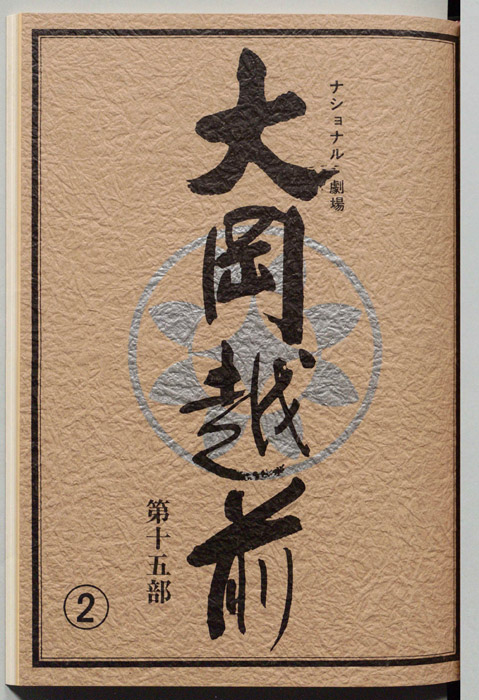 ナショナル劇場
大岡越前
第十五部
②